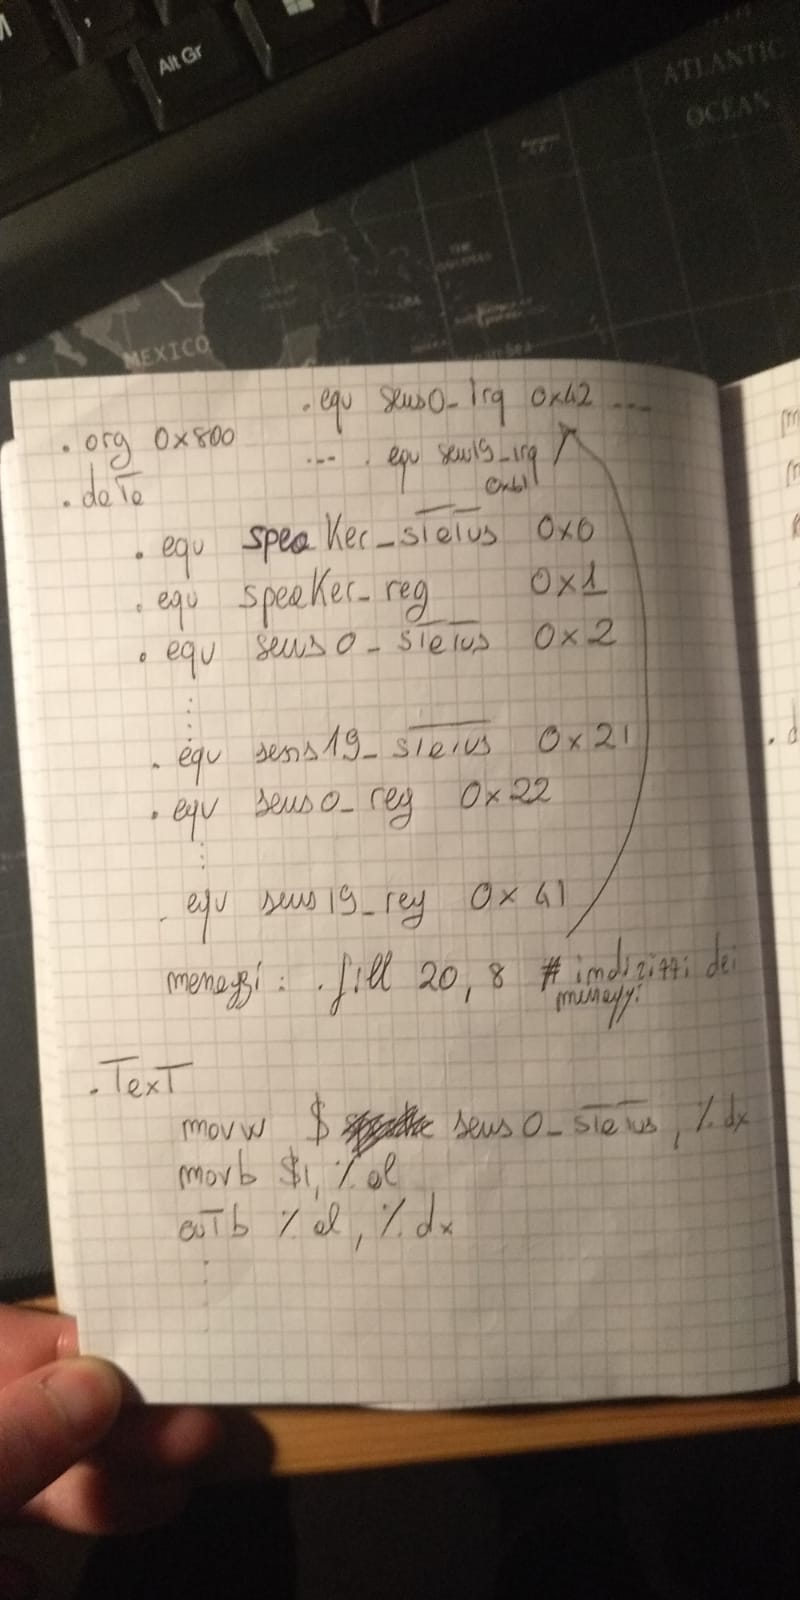 Alt Gr
ATLANTIC
OCEAN
MEXICO
.equ sens0_irq 0x42 ...
.org 0x800
... .equ sens19_irq
0x61
.data
.equ speaker_status 0x0
.equ speaker_reg 0x1
.equ sens0_status 0x2
.equ sens19_status 0x21
.equ sens0_reg 0x22
.equ sens19_reg 0x41
meneggi: .fill 20, 8 # indirizzi dei
.text
movw $ sens0_status, %dx
movb $1, %al
outb %al, %dx